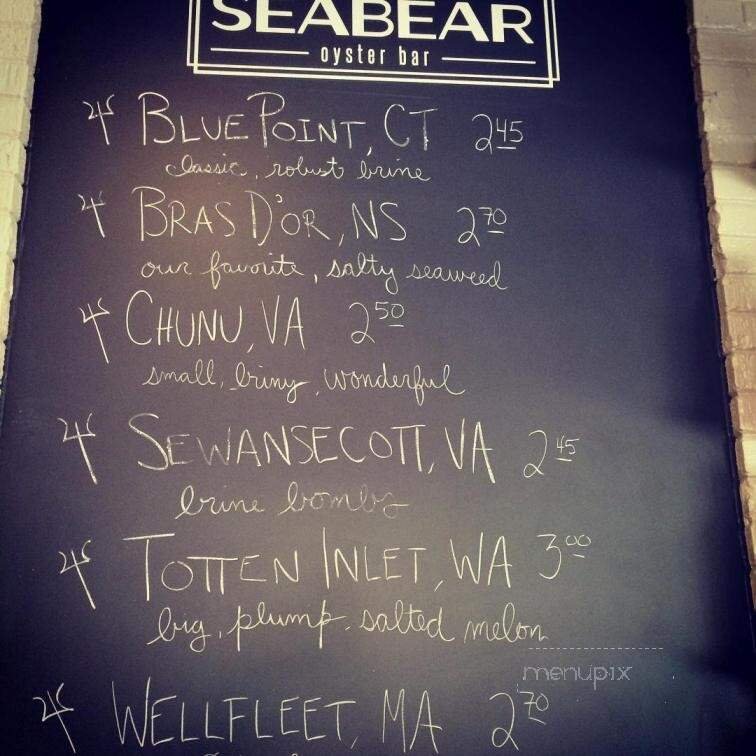 SEABEAR
oyster bar
BLUE POINT, CT 2 45
classic, robust brine
BRAS D'OR, NS 2 70
our favorite, salty seaweed
CHUNU, VA 2 50
small, briny, wonderful
SEWANSECOTT, VA 2 45
brine bombs
TOTTEN INLET, WA 3 00
big, plump, salted melon
menupix
WELLFLEET, MA 2 70